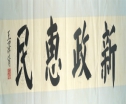 新政惠民